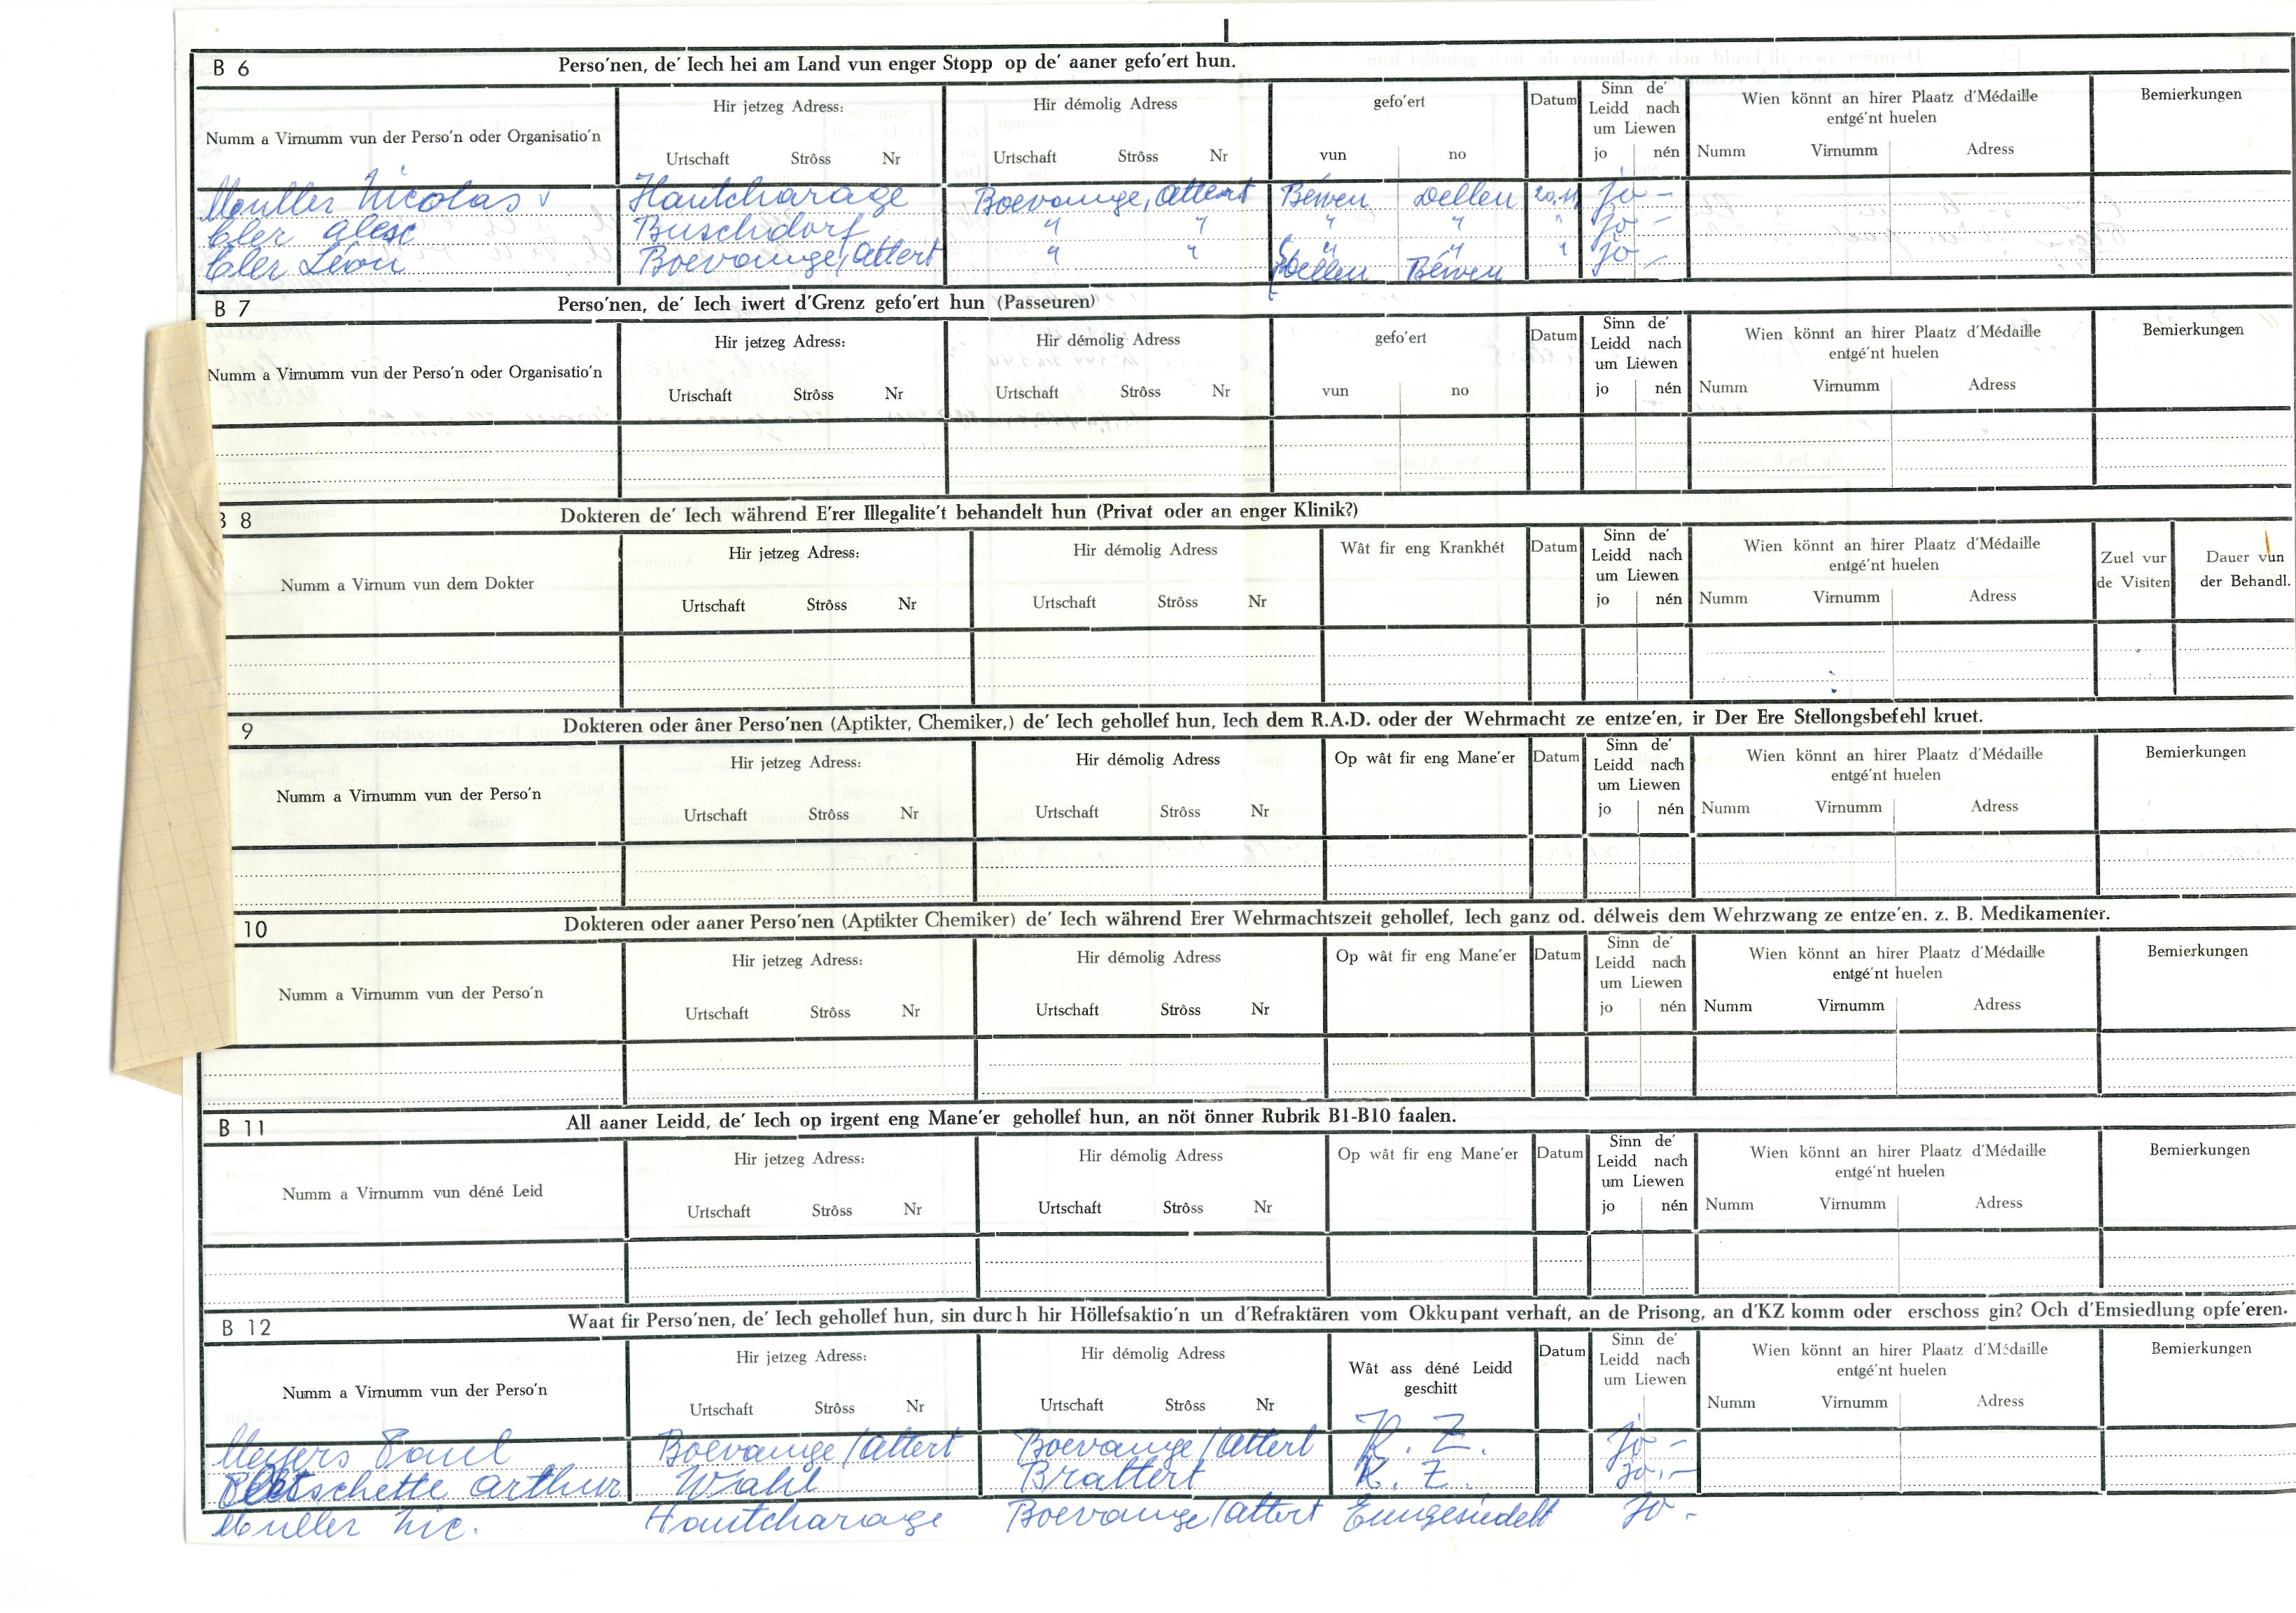 B 6 Perso'nen, de' Iech hei am Land vun enger Stopp op de' aaner gefo'ert hun.
Numm a Virnumm vun der Perso'n oder Organisatio'n
Hir jetzeg Adress:
Urtschaft Strôss Nr
Hir démolig Adress
Urtschaft Strôss Nr
gefo'ert
vun no
Datum
Sinn de'
Leidd nach
um Liewen
jo nén
Wien könnt an hirer Plaatz d'Médaille
entgé'nt huelen
Numm Virnumm Adress
Bemierkungen
Muller Nicolas v Hautcharage Boevange, Attert Béiven Dellen 20.11 jo -
Eler Hautcharage
Eler Léon Boevange/Attert " " Dellen Béiven " jo -
B 7 Perso'nen, de' Iech iwert d'Grenz gefo'ert hun (Passeuren)
Numm a Virnumm vun der Perso'n oder Organisatio'n
Hir jetzeg Adress:
Urtschaft Strôss Nr
Hir démolig Adress
Urtschaft Strôss Nr
gefo'ert
vun no
Datum
Sinn de'
Leidd nach
um Liewen
jo nén
Wien könnt an hirer Plaatz d'Médaille
entgé'nt huelen
Numm Virnumm Adress
Bemierkungen
B 8 Dokteren de' Iech während E'rer Illegalite't behandelt hun (Privat oder an enger Klinik?)
Numm a Virnum vun dem Dokter
Hir jetzeg Adress:
Urtschaft Strôss Nr
Hir démolig Adress
Urtschaft Strôss Nr
Wât fir eng Krankhét
Datum
Sinn de'
Leidd nach
um Liewen
jo nén
Wien könnt an hirer Plaatz d'Médaille
entgé'nt huelen
Numm Virnumm Adress
Zuel vur
de Visiten
Dauer vun
der Behandl.
9 Dokteren oder âner Perso'nen (Aptikter, Chemiker,) de' Iech gehollef hun, Iech dem R.A.D. oder der Wehrmacht ze entze'en, ir Der Ere Stellongsbefehl kruet.
Numm a Virnumm vun der Perso'n
Hir jetzeg Adress:
Urtschaft Strôss Nr
Hir démolig Adress
Urtschaft Strôss Nr
Op wât fir eng Mane'er
Datum
Sinn de'
Leidd nach
um Liewen
jo nén
Wien könnt an hirer Plaatz d'Médaille
entgé'nt huelen
Numm Virnumm Adress
Bemierkungen
10 Dokteren oder aaner Perso'nen (Aptikter Chemiker) de' Iech während Erer Wehrmachtszeit gehollef, Iech ganz od. délweis dem Wehrzwang ze entze'en. z. B. Medikamenter.
Numm a Virnumm vun der Perso'n
Hir jetzeg Adress:
Urtschaft Strôss Nr
Hir démolig Adress
Urtschaft Strôss Nr
Op wât fir eng Mane'er
Datum
Sinn de'
Leidd nach
um Liewen
jo nén
Wien könnt an hirer Plaatz d'Médaille
entgé'nt huelen
Numm Virnumm Adress
Bemierkungen
B 11 All aaner Leidd, de' Iech op irgent eng Mane'er gehollef hun, an nöt önner Rubrik B1-B10 faalen.
Numm a Virnumm vun déné Leid
Hir jetzeg Adress:
Urtschaft Strôss Nr
Hir démolig Adress
Urtschaft Strôss Nr
Op wât fir eng Mane'er
Datum
Sinn de'
Leidd nach
um Liewen
jo nén
Wien könnt an hirer Plaatz d'Médaille
entgé'nt huelen
Numm Virnumm Adress
Bemierkungen
B 12 Waat fir Perso'nen, de' Iech gehollef hun, sin durch hir Höllefsaktio'n un d'Refraktären vom Okkupant verhaft, an de Prisong, an d'KZ komm oder erschoss gin? Och d'Emsiedlung opfe'eren.
Numm a Virnumm vun der Perso'n
Hir jetzeg Adress:
Urtschaft Strôss Nr
Hir démolig Adress
Urtschaft Strôss Nr
Wât ass déné Leidd
geschitt
Datum
Sinn de'
Leidd nach
um Liewen
Wien könnt an hirer Plaatz d'Médaille
entgé'nt huelen
Numm Virnumm Adress
Bemierkungen
Meyers Paul Boevange/Attert Boevange/Attert K. Z. jo -
Pletschette Arthur Wahl Brattert K. Z. jo. -
Muller Nic. Hautcharage Boevange/Attert Emgesiedelt jo -